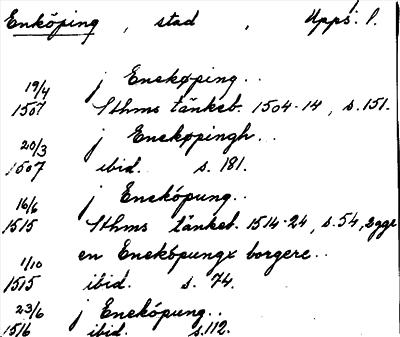 Enköping, stad, Upps. l.
19/4 j Enekøping..
1507 Sthms tänkeb. 1504-14, s. 151.
20/3 j Enekøpingh..
1507 ibid. s. 181.
16/6 j Eneköpung..
1515 Sthms tänkeb. 1514-24, s. 54, 2 ggr
1/10 en Eneköpungx borgere..
1515 ibid. s. 74.
23/6 j Eneköpung..
1516 ibid. s. 112.